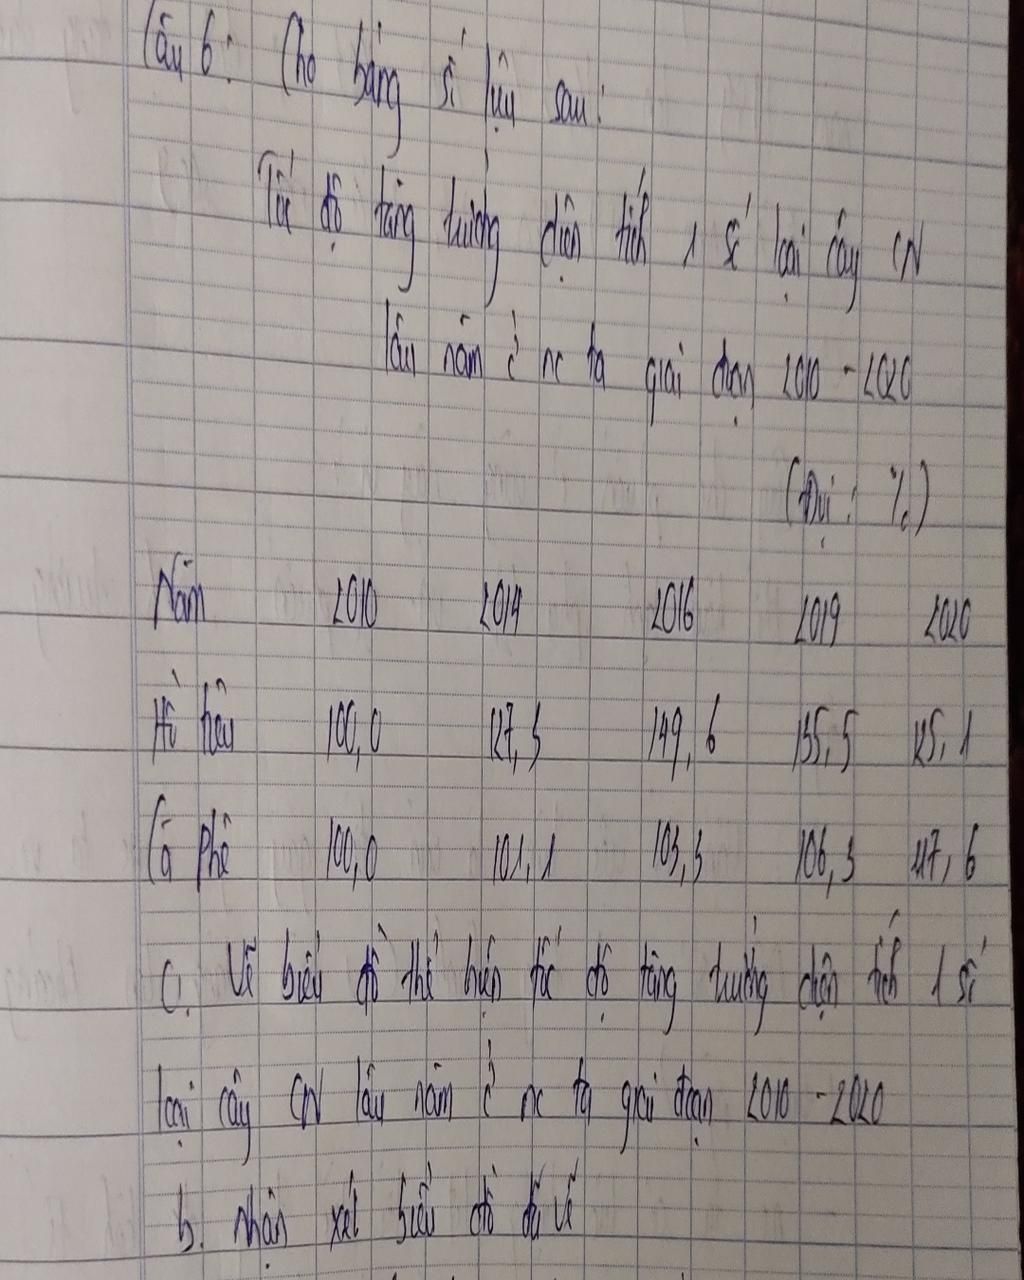 Câu 6: Cho bảng số liệu sau:
Tốc độ tăng trưởng diện tích 1 số loại cây CN
lâu năm ở nc ta giai đoạn 2010 - 2020
(Đvị: %)
Năm 2010 2014 2016 2019 2020
Hồ tiêu 100,0 127,3 149,6 155,5 125,1
Cà phê 100,0 101,1 103,3 106,3 117,6
a. Vẽ biểu đồ thể hiện tốc độ tăng trưởng diện tích 1 số
loại cây CN lâu năm ở nc ta giai đoạn 2010 - 2020
b. Nhận xét biểu đồ đã vẽ